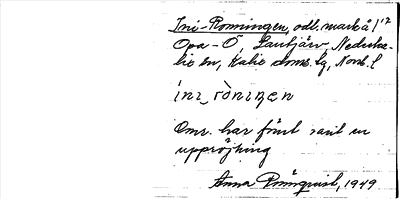 Ini-Ronningen, odl. mark å 1'2
Opa-Ö, Lantjärv, Nederka-
lix sn, Kalix doms. lg, Norrb. l
ini_ròniŋen
Omr. har förut varit en
uppröjning
Anna Rönnquist, 1949